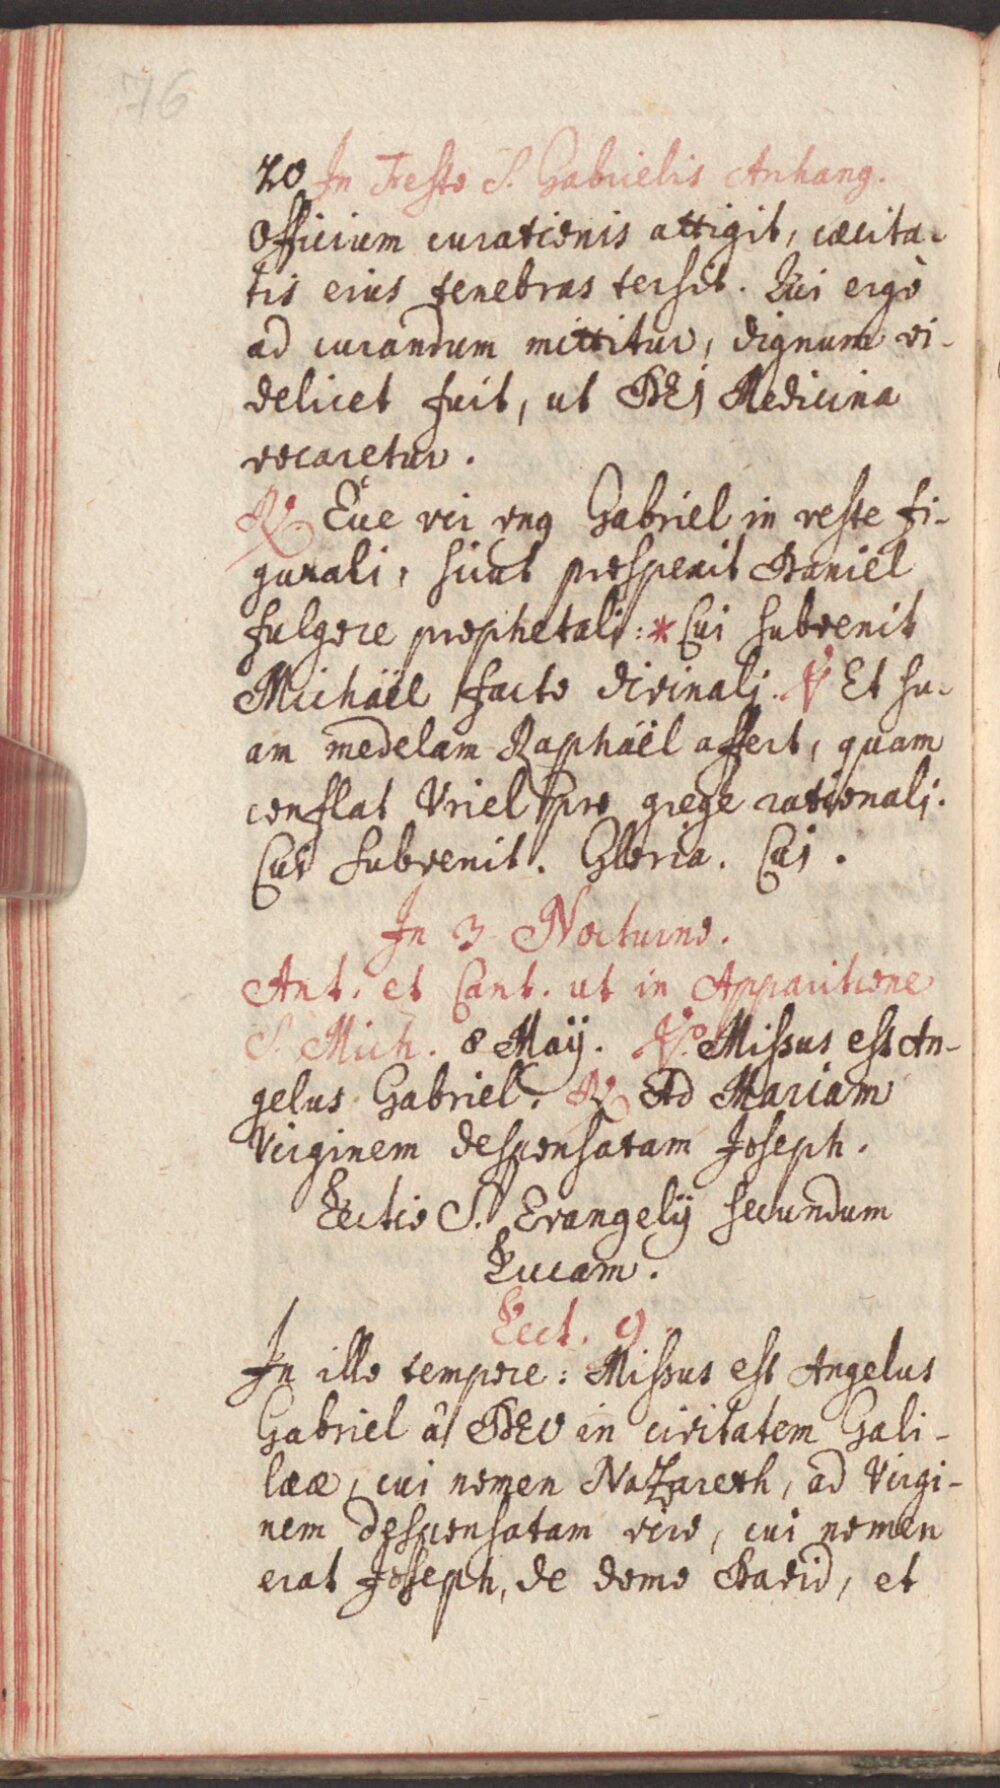 76
20 In Festo S. Gabrielis Arhang.
Officium curationis attigit, cæcita-
tis eius tenebras tersit. Qui ergò
ad curandum mittitur, dignum vi-
delicet fuit, ut DEj Medicina
vocaretur.
℟. Ecce vir Gabriel in veste fi-
gurali, sicut prospexit Daniël
fulgore prophetali: * Cui subvenit
Michäel facto divinalj. ℣ Et su-
am medelam Raphäël affert, quam
conflat Vriel pro grege rationalj.
Cui subvenit. Gloria. Cui.
In 3 Nocturno.
Ant. et Cant. ut in Apparitione
S. Mich. 8 Maÿ. ℣. Missus est An-
gelus Gabriel. ℟ Ad Mariam
Virginem desponsatam Joseph.
Lectio S. Evangelÿ secundum
Lucam.
Lect. 9
In illo tempore: Missus est Angelus
Gabriel â DEO in civitatem Gali-
lææ, cui nomen NaZareth, ad Virgi-
nem desponsatam viro, cui nomen
erat Joseph, de domo David, et